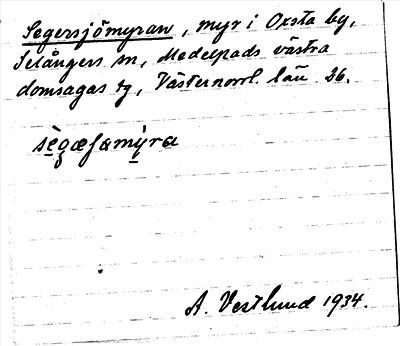 Segersjömyran, myr i Oxsta by,
Selångers sn, Medelpads västra
domsagas tg, Västernorrl. län 36.
sègæʃamỳra
A. Vestlund 1934.